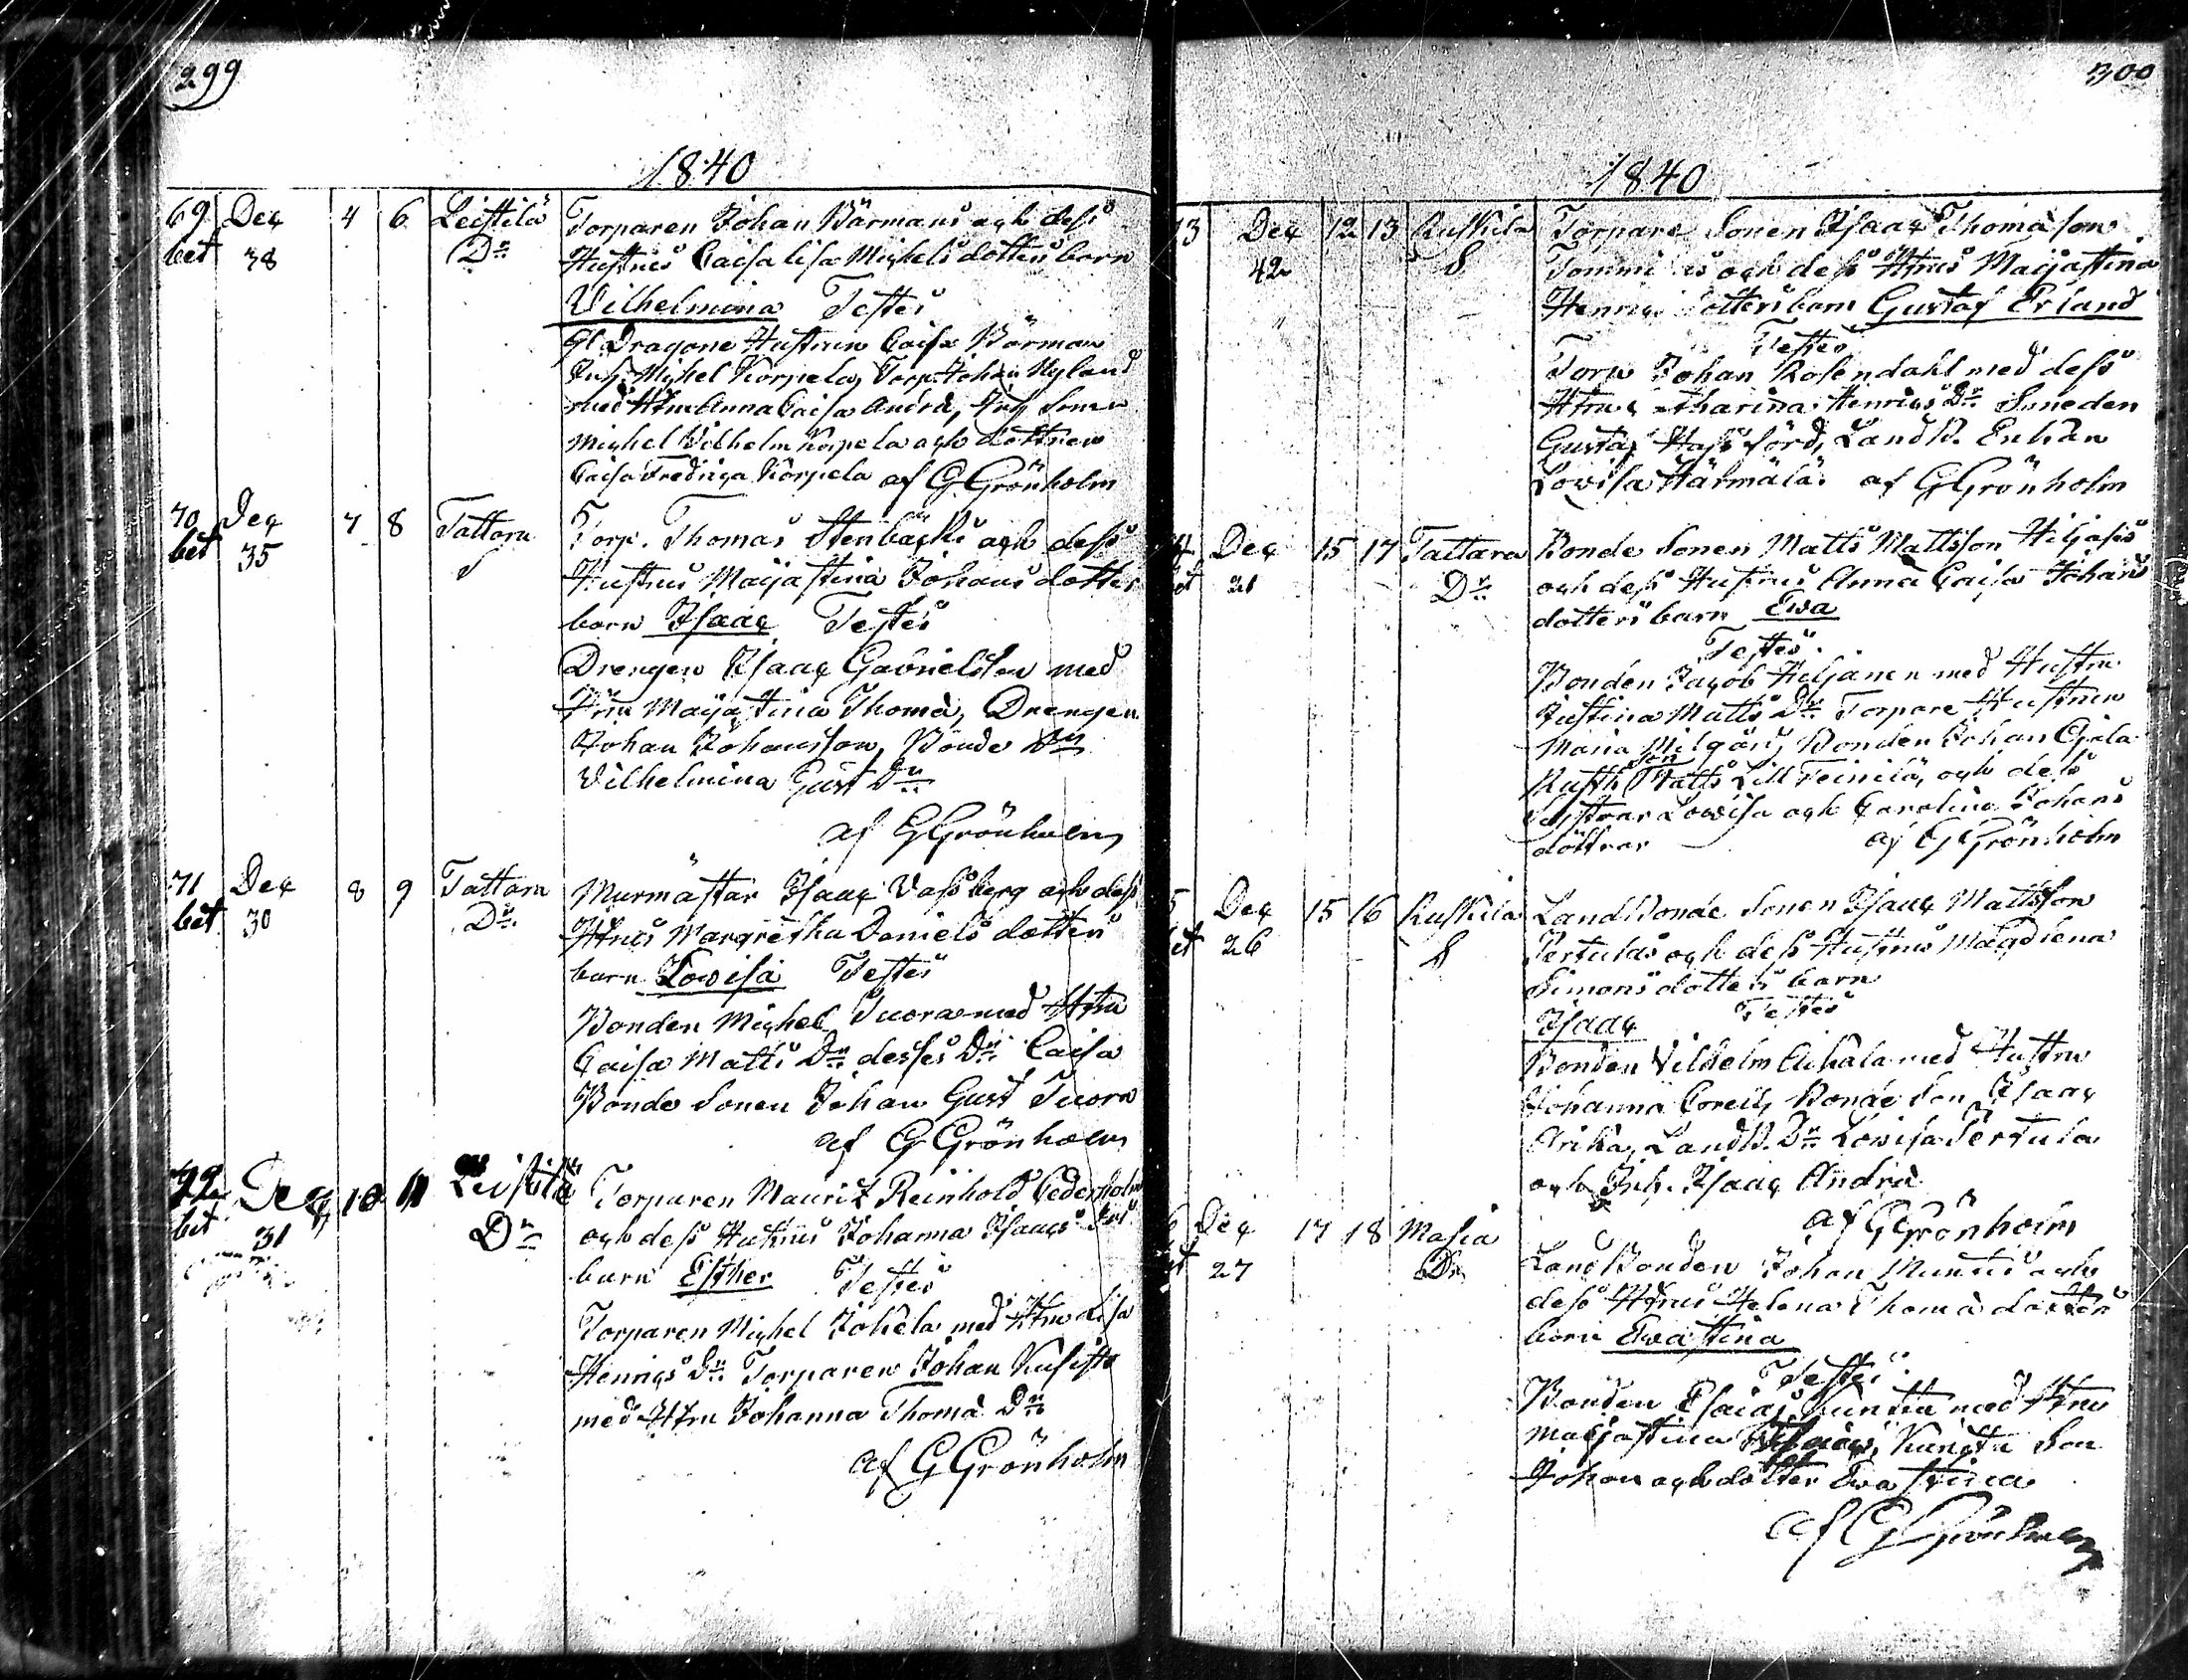 299
1840
69 Dec 4 6 Leistilä Torparen Johan Bärmans och dess
bet 38 Dr Hustrus Caisa Lisa Michelsdotters barn
Vilhelmina Testes
Gl. Dragone Hustrun Caisa Bärman
Inh. Michel Korpela, Torp. Johan Nyland
med Htru Anna Caisa Andrä, Inh Sonen
Michel Vilhelm Korpela och dottren
Caisa Fredrica Korpela af G Grönholm
70 Dec 7 8 Tattara Torp. Thomas Stenbäcks och dess
bet 35 S Hustrus Maijastina Johansdotters
barn Isaac Testes
Drengen Isaac Gabrielsson med
Htru Maijastina Thoma, Drengen
Johan Johansson, Bonde Dr
Vilhelmina Gust Dr
af G Grönholm
71 Dec 8 9 Tattara Murmästar Isaac Vassberg och dess
bet 30 Dr Htrus Margretha Daniels dotters
barn Lovisa Testes
Bonden Michel Tuora med Htru
Caisa Matts Dr desses Dr Caisa
Bonde Sonen Johan Gust Tuora
af G Grönholm
72 Dec 10 11 Leistilä Torparen Maurit Reinhold Cederholm
bet 31 Dr och dess Hustrus Johanna Isaacs Dr
barn Esther Testes
Torparen Michel Johela med Htru Lisa
Henrics Dr Torparen Johan Kusisto
med Htru Johanna Thoma Dr
af G Grönholm
300
1840
73 Dec 12 13 Ruskila Torpare Sonen Isaac Thomasson
42 S Tommi och dess Htrus Maijastina
Henrics dotters barn Gustaf Erland
Testes
Torp Johan Rosendahl med dess
Htru Catharina Henrics Dr Smeden
Gustaf Hassförd, Land B. Enkan
Lovisa Härmälä af G Grönholm
74 Dec 15 17 Tattara Bonde Sonen Matts Mattsson Hiljas
bet 21 Dr och dess Hustrus Anna Caisa Johans
dotters barn Ewa
Testes
Bonden Jacob Hiljanen med Hustru
Justina Matts Dr Torpare Hustrun
Maria Bonden Johan
Rusth Son Matts Lill Teinilä, och dess
Systrar Lovisa och Carolina Johans
döttrar af G Grönholm
75 Dec 15 16 Ruskila Land Bonde Sonen Isaac Mattsson
bet 26 S Pertulas och dess Hustrus Magdlena
Simonsdotters barn
Isaac Testes
Bonden Vilhelm Auhala med Hustru
Johanna Bonde Son Isaac
Arika, Land B. Dr Lovisa Pertula
och Inh. Isaac Andra
af G Grönholm
76 Dec 17 18 Masia Land Bonden Johan och
bet 27 Dr dess Htrus Helena Thoma dotters
barn Ewa Stina
Testes
Bonden Esaias med Htru
Maijastina Son
Johan och dotter Ewa Stina
af G Grönholm